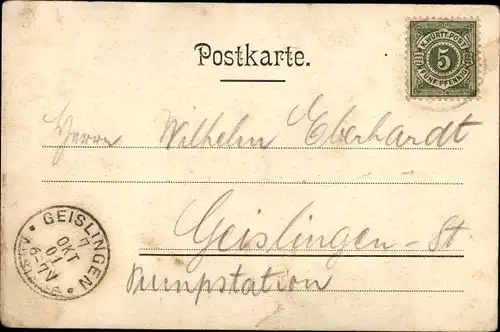 Postkarte.
K. WÜRTT. POST
5
FÜNF PFENNIG
Herrn Wilhelm Eberhardt
Geislingen-St
Pumpstation
GEISLINGEN
7
OKT
01
6-7V